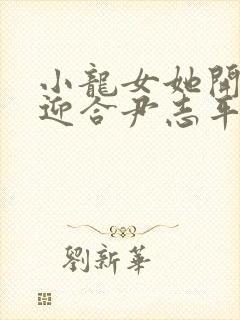 小龍女她開
迎合尹志平
劉新華